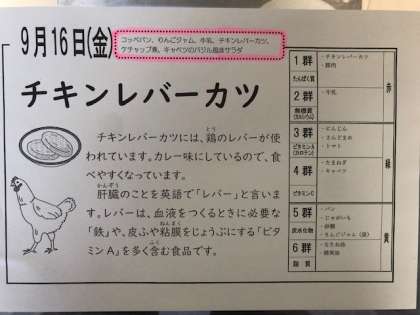 9月16日(金)
コッペパン、りんごジャム、牛乳、チキンレバーカツ、
ケチャップ煮、キャベツのバジル風味サラダ
チキンレバーカツ
チキンレバーカツには、鶏のレバーが
とり
使われています。カレー味にしているので、食
べやすくなっています。
かんぞう
肝臓のことを英語で「レバー」と言いま
す。レバーは、血液をつくるときに必要な
ねんまく
「鉄」や、皮ふや粘膜をじょうぶにする「ビタ
ふく
ミンA」を多く含む食品です。
1群
たんぱく質
・チキンレバーカツ
・豚肉
2群
無機質
(カルシウム)
・牛乳
赤
3群
ビタミンA
(カロテン)
・にんじん
・さんどまめ
・トマト
4群
ビタミンC
・たまねぎ
・キャベツ
緑
5群
炭水化物
・パン
・じゃがいも
・砂糖
・りんごジャム（袋）
6群
脂質
・なたね油
黄